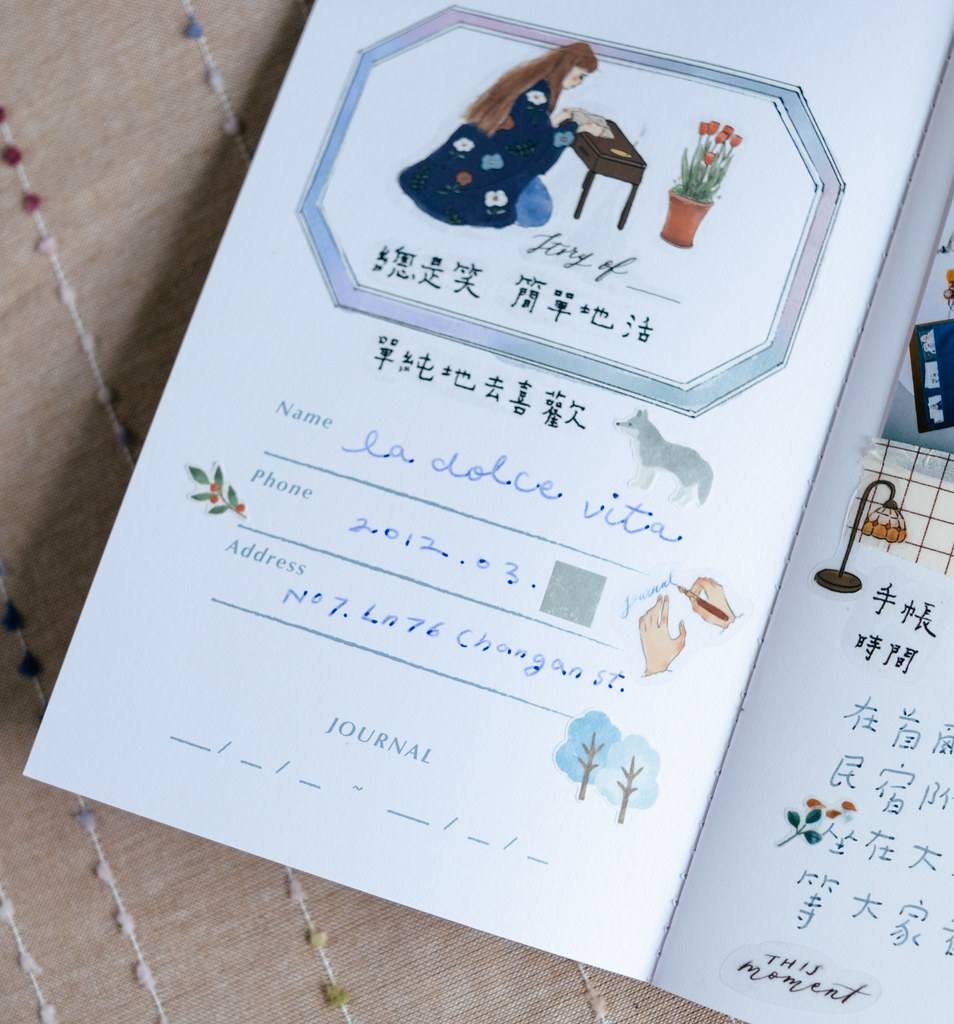 Story of
總是笑 簡單地活
單純地去喜歡
Name
la dolce vita
Phone
2012.03.
Address
No7. Ln76 Changan st.
Journal
JOURNAL
__/__/__ ~ __/__/__
手帳
時間
在首爾
民宿附
坐在大
等大家
THIS
moment